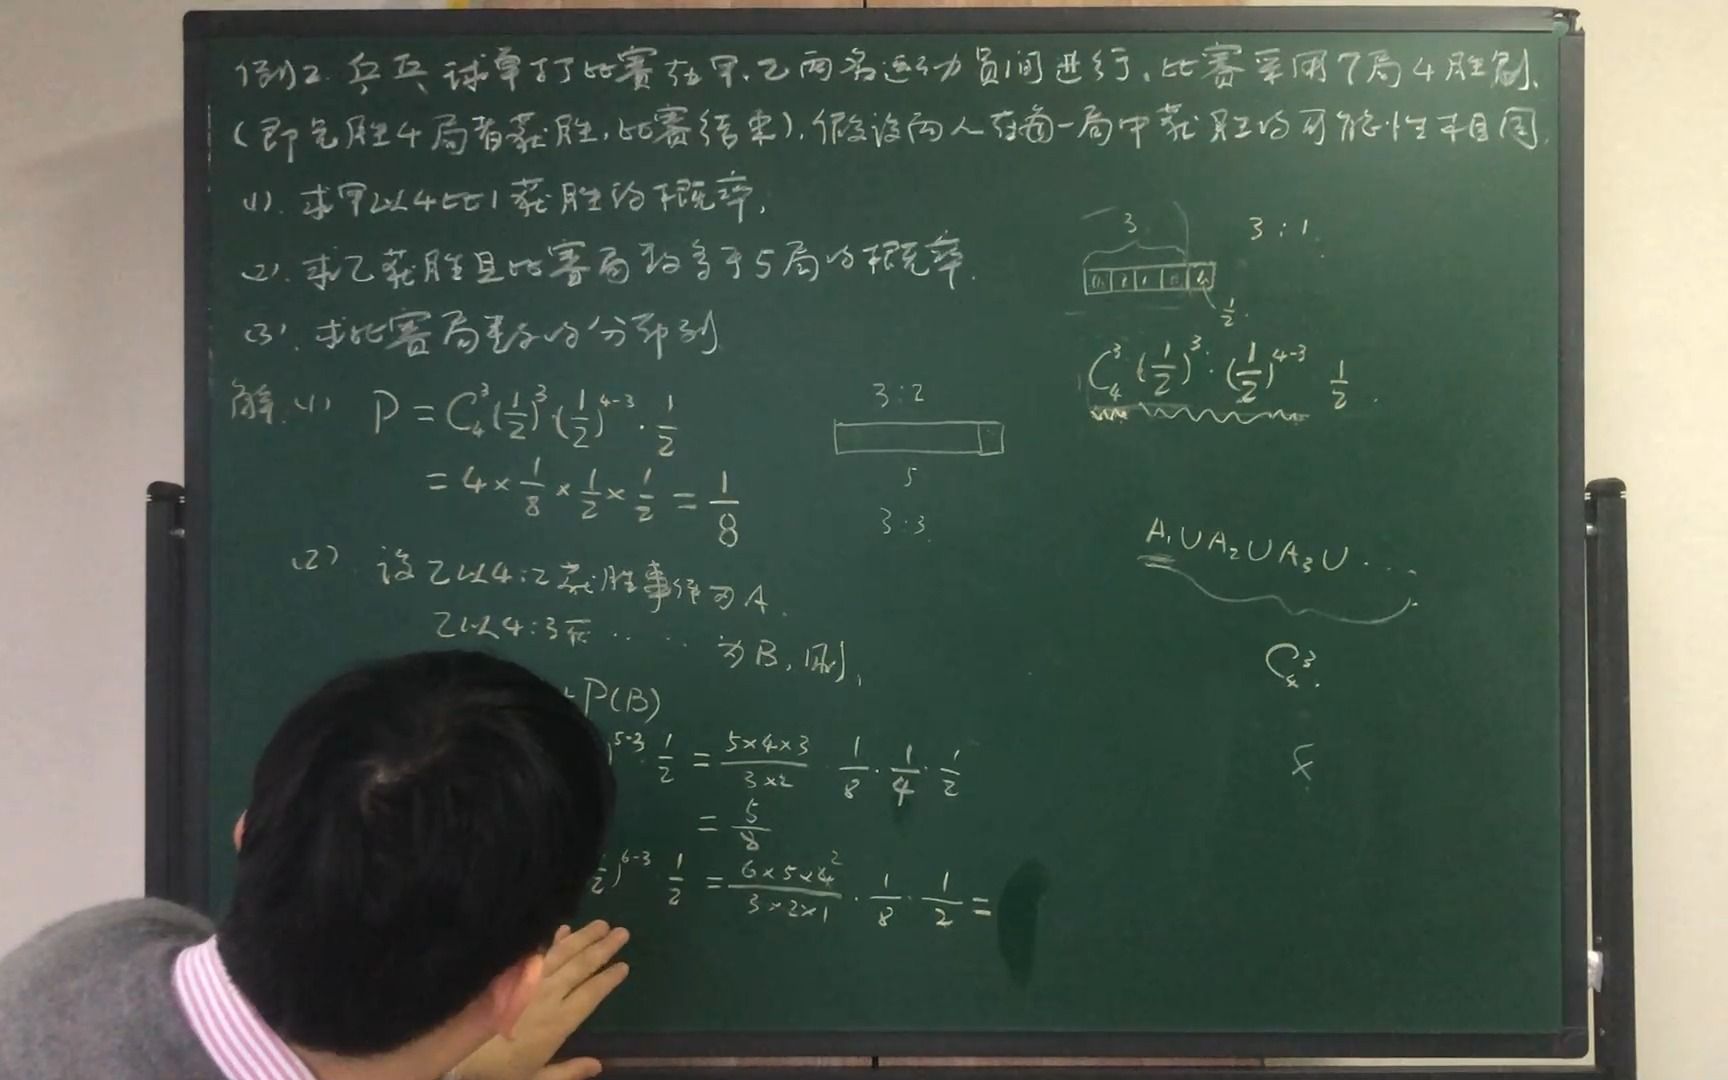 例2. 乒乓球单打比赛在甲、乙两名运动员间进行,比赛采用7局4胜制.
(即先胜4局者获胜,比赛结束),假设两人在每一局中获胜的可能性相同.
(1). 求甲以4比1获胜的概率,
(2). 求乙获胜且比赛局数多于5局的概率.
(3). 求比赛局数的分布列
解:(1) P = C₄³(1/2)³·(1/2)⁴⁻³·1/2
= 4×1/8×1/2×1/2 = 1/8
(2) 设乙以4:2获胜事件为A,
乙以4:3获 ‥ ‥ 为B,则,
+P(B)
)⁵⁻³·1/2 = 5×4×3/3×2 · 1/8·1/4·1/2
= 5/8
1/2)⁶⁻³·1/2 = 6×5×4²/3×2×1 · 1/8·1/2 =
3:2
5
3:3
3 3:1
1/2
C₄³(1/2)³·(1/2)⁴⁻³ 1/2
A₁∪A₂∪A₃∪‥‥
C₄³